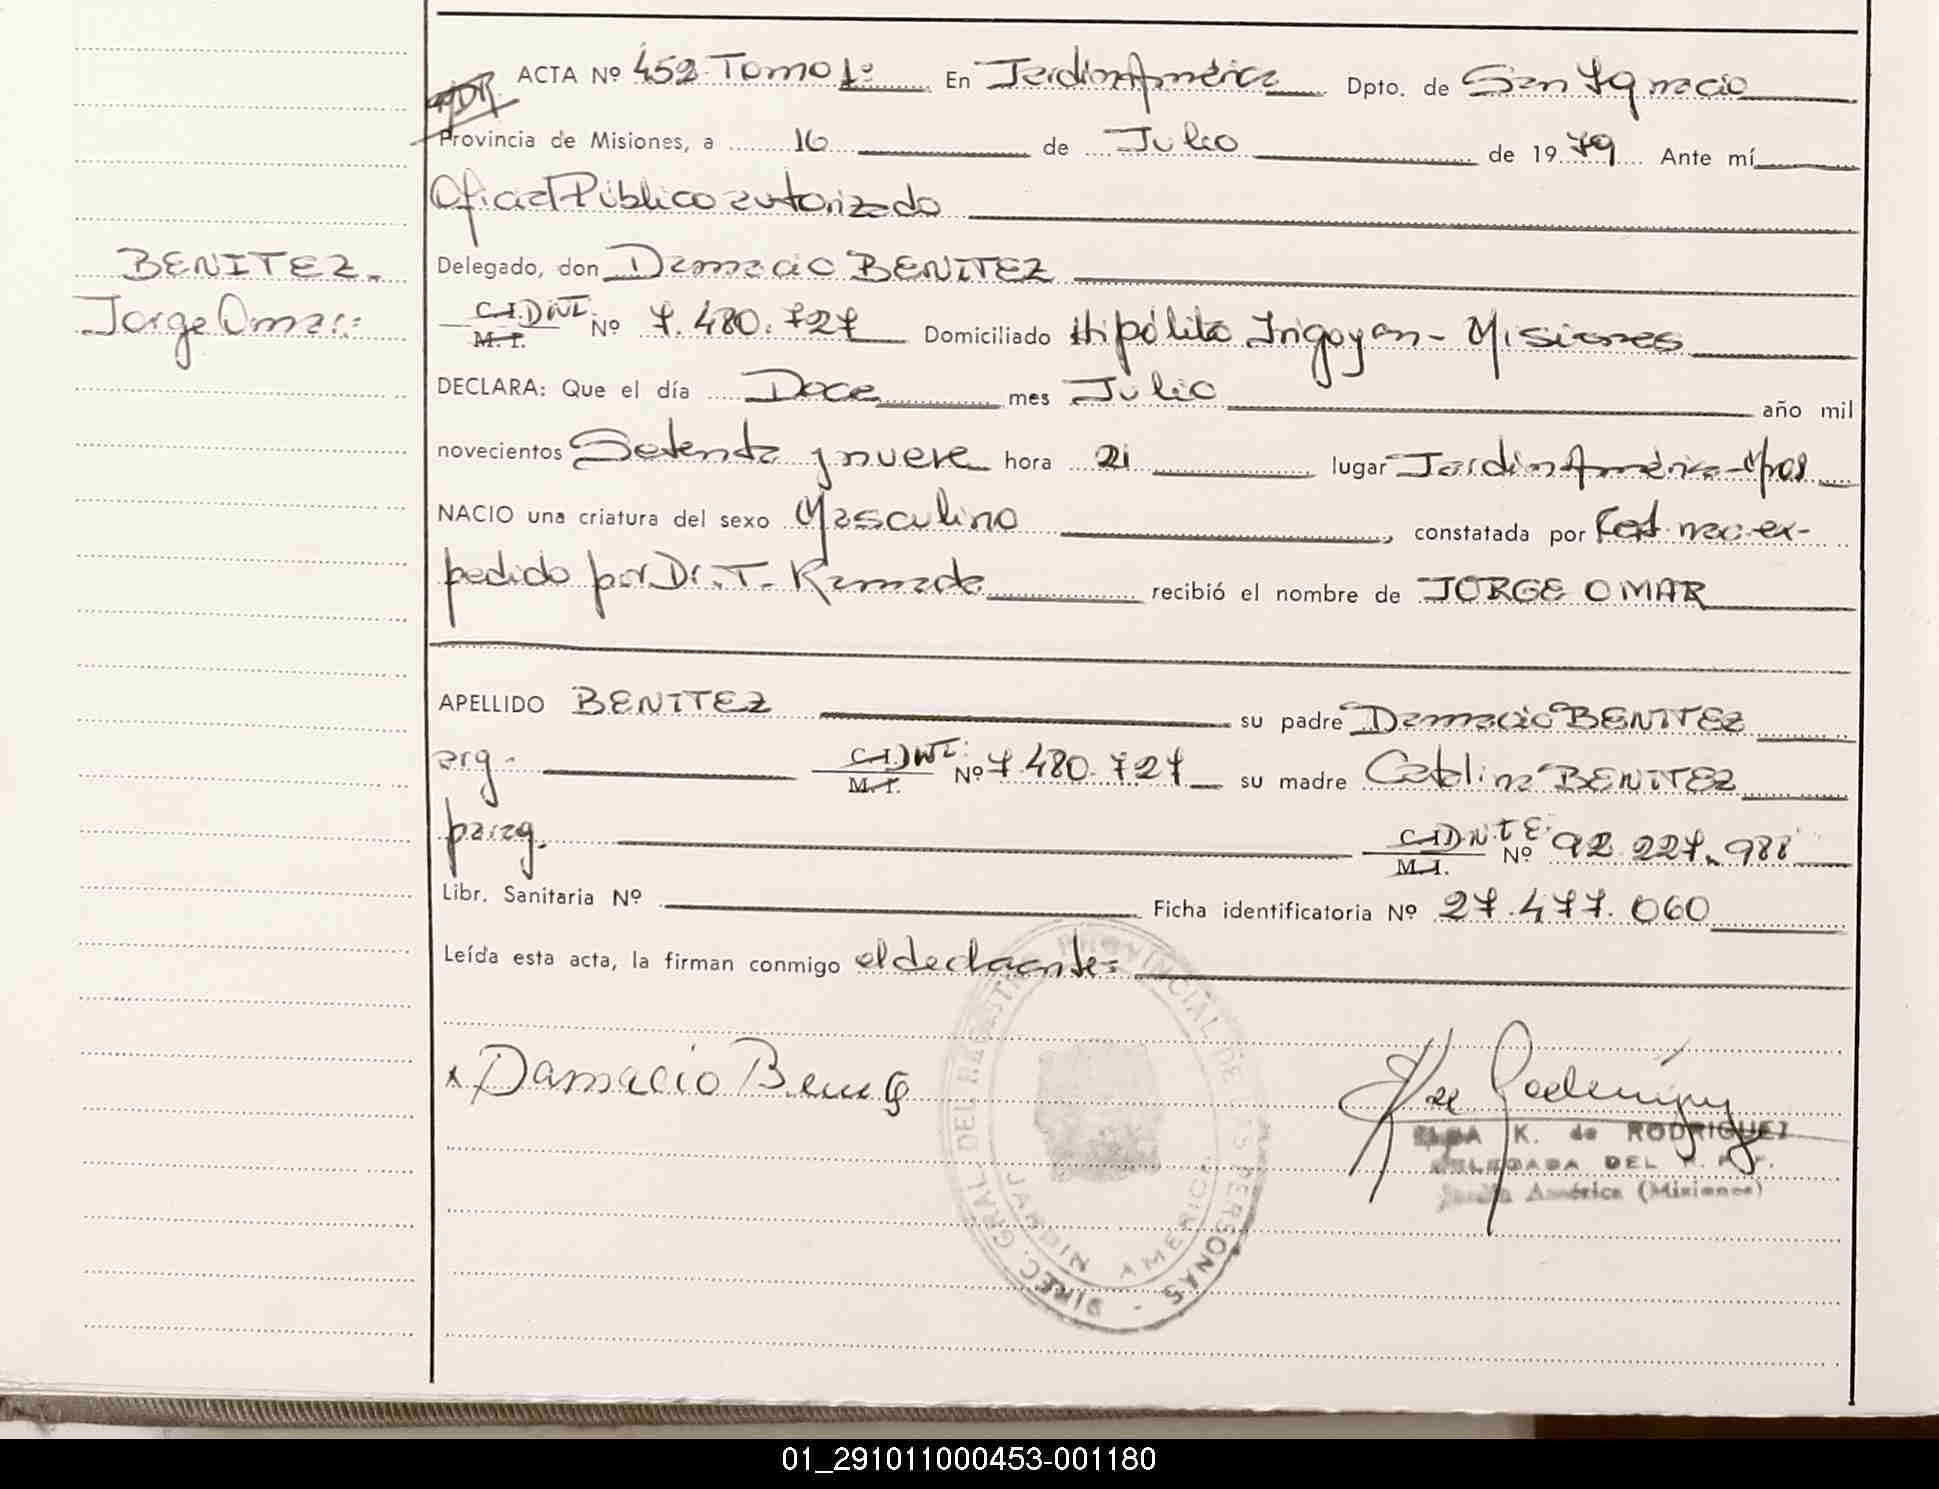 ACTA Nº 452 Tomo 1º En Jardín América Dpto. de San Ignacio
Provincia de Misiones, a 16 de Julio de 1979 Ante mí
Oficial Público autorizado
BENITEZ.
Jorge Omar.
Delegado, don Damacio BENITEZ
C.I. DNI. M.I. Nº 7.480.727 Domiciliado Hipólito Irigoyen - Misiones
DECLARA: Que el día Doce mes Julio año mil
novecientos Setenta y nueve hora 21 lugar Jardín América - Mnes
NACIO una criatura del sexo Masculino, constatada por Cert. nac. ex-
pedido por Dr. T. Ramada recibió el nombre de JORGE OMAR
APELLIDO BENITEZ su padre Damacio BENITEZ
arg. C.I. DNI. M.I. Nº 7.480.727 su madre Catalina BENITEZ
parag. C.I. DNI E. M.I. Nº 92.227.988
Libr. Sanitaria Nº Ficha identificatoria Nº 27.477.060
Leída esta acta, la firman conmigo el declarante
x Damacio
DIREC. GRAL. DEL REGISTRO PROVINCIAL DE LAS PERSONAS
JARDIN AMERICA
K. de RODRIGUEZ
DELEGADA DEL
Jardín América (Misiones)
01_291011000453-001180